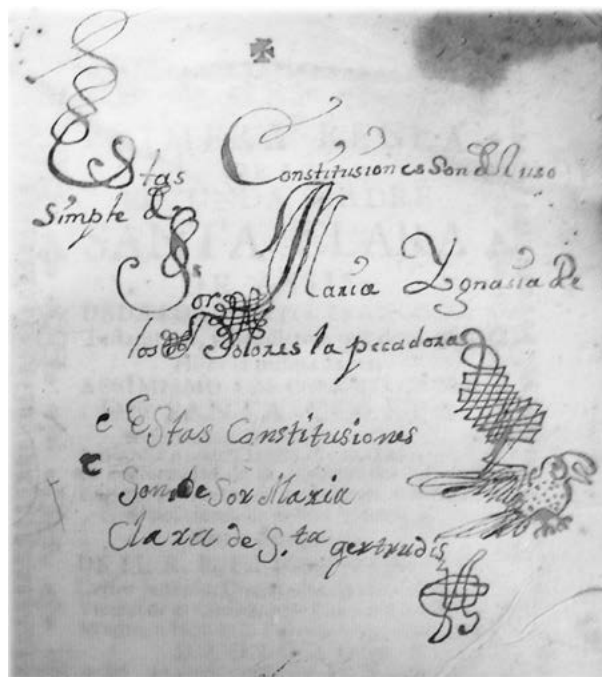 Estas Constitusiones Son del uso
Simple de
Sor Maria Ygnasia De
los Dolores la pecadora
Estas Constitusiones
Son de Sor Maria
Clara de S.ta gertrudis